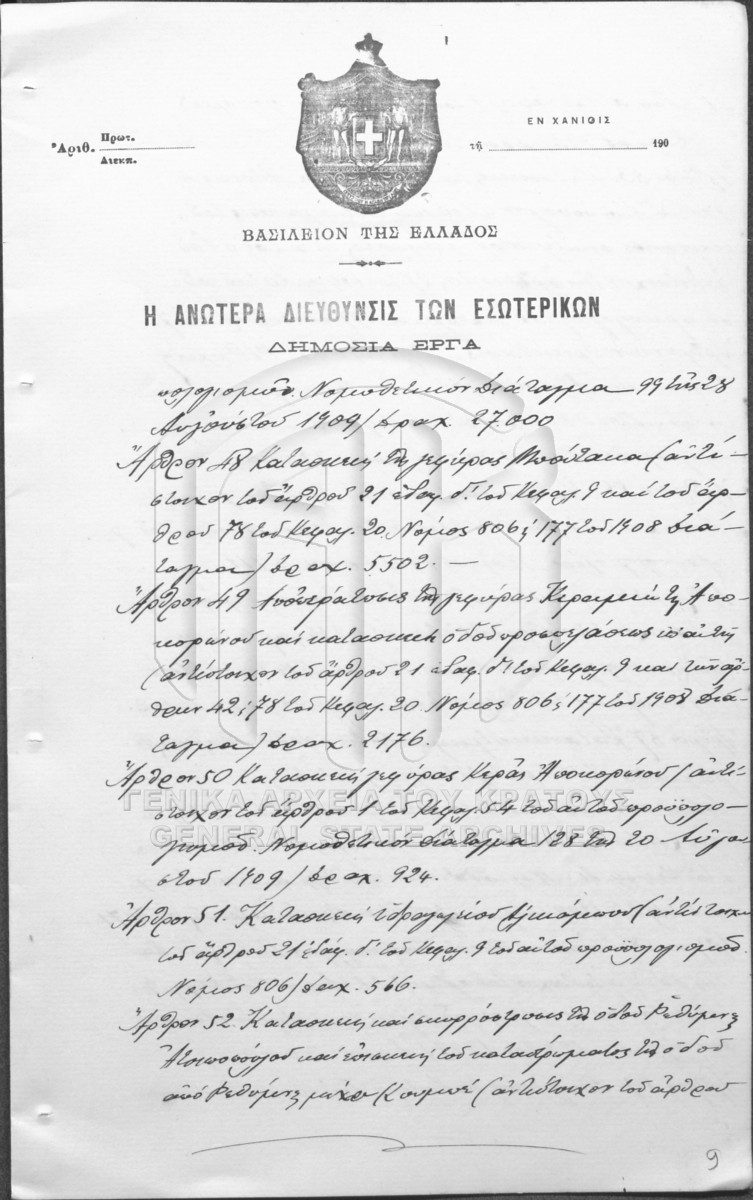 Ἀριθ. Πρωτ.
Διεκπ.
ΕΝ ΧΑΝΙΟΙΣ
τῇ 190
ΒΑΣΙΛΕΙΟΝ ΤΗΣ ΕΛΛΑΔΟΣ
Η ΑΝΩΤΕΡΑ ΔΙΕΥΘΥΝΣΙΣ ΤΩΝ ΕΣΩΤΕΡΙΚΩΝ
ΔΗΜΟΣΙΑ ΕΡΓΑ
πολογισμοῦ. Νομοθετικὸν Διάταγμα 99 τῆς 28
Αὐγούστου 1909) δραχ. 27.000
Ἄρθρον 48 Κατασκευὴ τῆς γεφύρας (ἀντί-
στοιχον τοῦ ἄρθρου 21 ἐδαφ. δ'. τοῦ Κεφαλ. 9 καὶ τοῦ ἄρ-
θρου 78 τοῦ Κεφαλ. 20. Νόμος 806 ἢ 177 τοῦ 1908 Διά-
ταγμα) δραχ. 5502. —
Ἄρθρον 49 τῆς γεφύρας τῆς Ἀπο-
κορώνου καὶ κατασκευὴ ὁδοῦ προσπελάσεως ἐπ' αὐτῇ
(ἀντίστοιχον τοῦ ἄρθρου 21 ἐδαφ. δ'. τοῦ Κεφαλ. 9 καὶ τῶν ἄρ-
θρων 42 ἢ 78 τοῦ Κεφαλ. 20. Νόμος 806 ἢ 177 τοῦ 1908 Διά-
ταγμα) δραχ. 2176.
Ἄρθρον 50 Κατασκευὴ γεφύρας Κερᾶς Ἀποκορώνου (ἀντί-
στοιχον τοῦ ἄρθρου 1 τοῦ Κεφαλ. 54 τοῦ αὐτοῦ προϋπολο-
γισμοῦ. Νομοθετικὸν διάταγμα 128 τῆς 20 Αὐγού-
στου 1909) δραχ. 924.
Ἄρθρον 51. Κατασκευὴ ὑδραγωγείου Ἀλικάμπου (ἀντίστοιχον
τοῦ ἄρθρου 21 ἐδαφ. δ'. τοῦ Κεφαλ. 9 τοῦ αὐτοῦ προϋπολογισμοῦ.
Νόμος 806) δραχ. 566.
Ἄρθρον 52. Κατασκευὴ καὶ σκυρόστρωσις τῆς ὁδοῦ Ρεθύμνης
Ἀτσιποπούλου καὶ ἐπισκευὴ τοῦ καταστρώματος τῆς ὁδοῦ
ἀπὸ Ρεθύμνης μέχρι Κουμπὲ (ἀντίστοιχον τοῦ ἄρθρου
9
ΓΕΝΙΚΑ ΑΡΧΕΙΑ ΤΟΥ ΚΡΑΤΟΥΣ
GENERAL STATE ARCHIVES